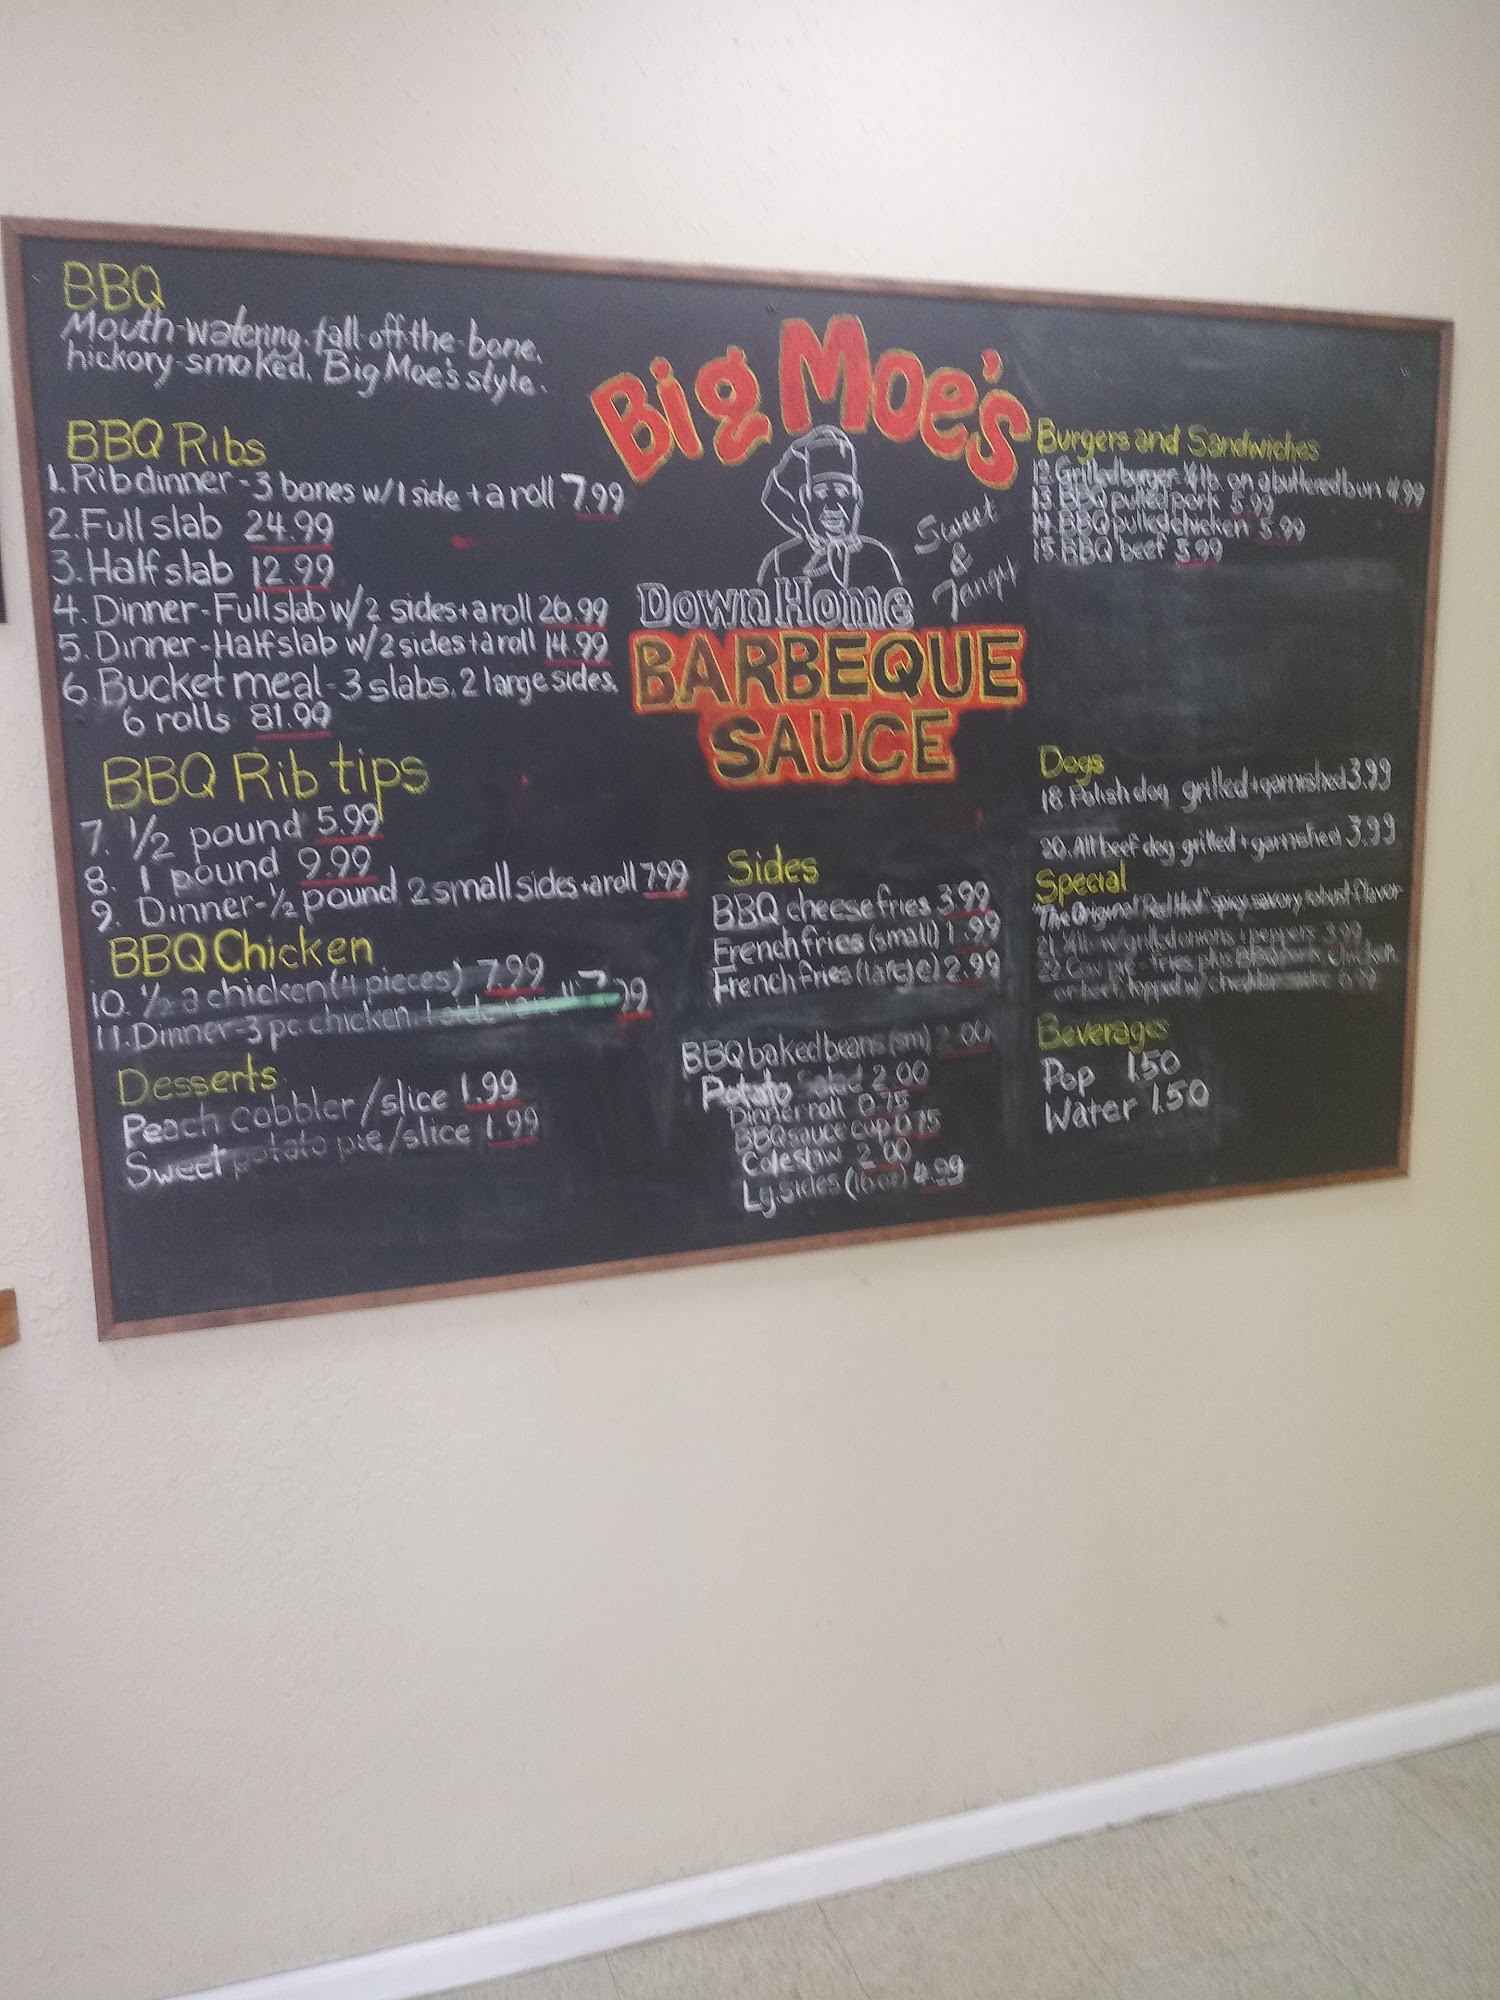 BBQ
Mouth-watering, fall-off-the-bone,
hickory-smoked, Big Moe's style.
BBQ Ribs
1. Rib dinner - 3 bones w/1 side + a roll 7.99
2. Full slab 24.99
3. Half slab 12.99
4. Dinner - Full slab w/2 sides + a roll 26.99
5. Dinner - Half slab w/2 sides + a roll 14.99
6. Bucket meal - 3 slabs, 2 large sides,
6 rolls 81.99
BBQ Rib tips
7. 1/2 pound 5.99
8. 1 pound 9.99
9. Dinner - 1/2 pound 2 small sides + a roll 7.99
BBQ Chicken
10. 1/2 a chicken (4 pieces) 7.99
11. Dinner - 3 pc chicken,
Desserts
Peach cobbler/slice 1.99
Sweet potato pie/slice 1.99
Big Moe's
Sweet
&
Tangy
Down Home
BARBEQUE
SAUCE
Sides
BBQ cheese fries 3.99
French fries (small) 1.99
French fries (large) 2.99
BBQ baked beans (sm) 2.00
Potato Salad 2.00
Dinner roll 0.75
BBQ sauce cup 0.75
Coleslaw 2.00
Lg. sides (16 oz) 4.99
Burgers and Sandwiches
12. Grilled burger 1/4 lb. on a buttered bun 4.99
13. BBQ pulled pork 5.99
14. BBQ pulled chicken 5.99
15. BBQ beef 5.99
Dogs
18. Polish dog grilled + garnished 3.99
20. All beef dog grilled + garnished 3.99
Special
"The Original Red Hot" spicy savory robust flavor
21. w/grilled onions + peppers 3.99
22. Cow pie - fries plus BBQ pork, chicken
or beef, topped w/ cheddar
Beverages
Pop 1.50
Water 1.50